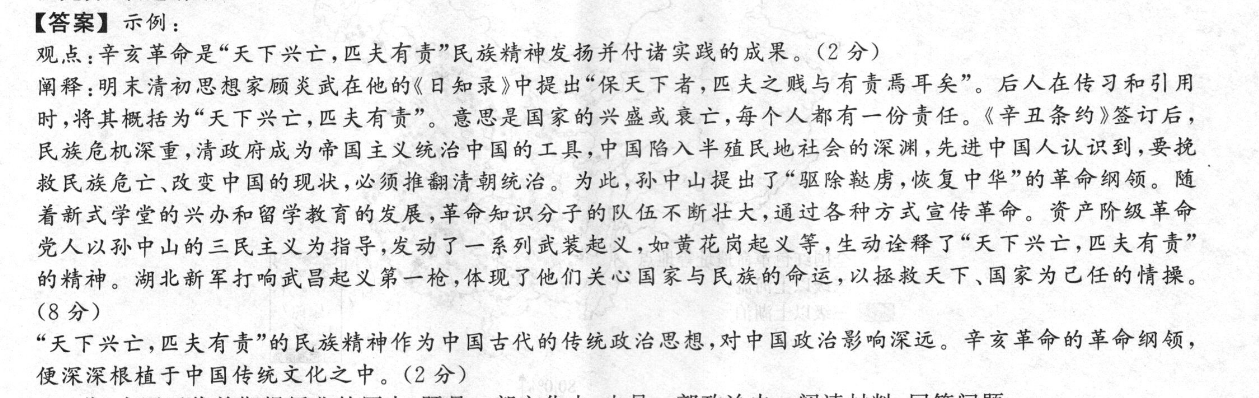 【答案】示例：
观点：辛亥革命是“天下兴亡，匹夫有责”民族精神发扬并付诸实践的成果。（2 分）
阐释：明末清初思想家顾炎武在他的《日知录》中提出“保天下者，匹夫之贱与有责焉耳矣”。后人在传习和引用
时，将其概括为“天下兴亡，匹夫有责”。意思是国家的兴盛或衰亡，每个人都有一份责任。《辛丑条约》签订后，
民族危机深重，清政府成为帝国主义统治中国的工具，中国陷入半殖民地社会的深渊，先进中国人认识到，要挽
救民族危亡、改变中国的现状，必须推翻清朝统治。为此，孙中山提出了“驱除鞑虏，恢复中华”的革命纲领。随
着新式学堂的兴办和留学教育的发展，革命知识分子的队伍不断壮大，通过各种方式宣传革命。资产阶级革命
党人以孙中山的三民主义为指导，发动了一系列武装起义，如黄花岗起义等，生动诠释了“天下兴亡，匹夫有责”
的精神。湖北新军打响武昌起义第一枪，体现了他们关心国家与民族的命运，以拯救天下、国家为己任的情操。
（8 分）
“天下兴亡，匹夫有责”的民族精神作为中国古代的传统政治思想，对中国政治影响深远。辛亥革命的革命纲领，
便深深根植于中国传统文化之中。（2 分）